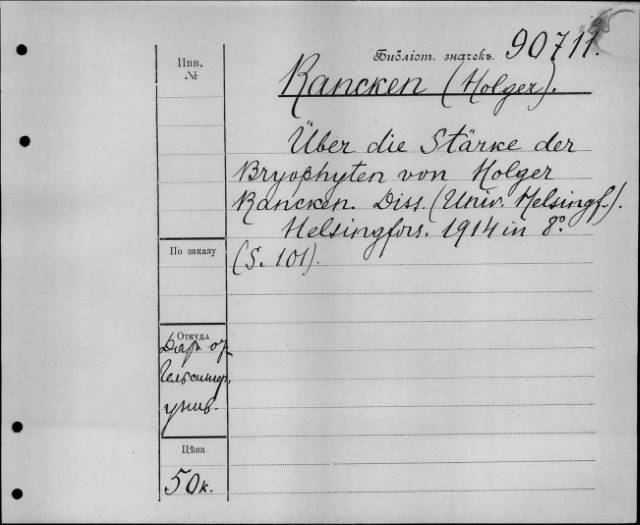 Библіот. значекъ. 90711.
Инв. №
Rancken (Holger).
Über die Stärke der
Bryophyten von Holger
Rancken. Diss. (Univ. Helsingf.).
Helsingfors. 1914 in 8º.
(S. 101).
По заказу
Откуда
Даръ
Гельсингф.
унив.
Цѣна
50 к.